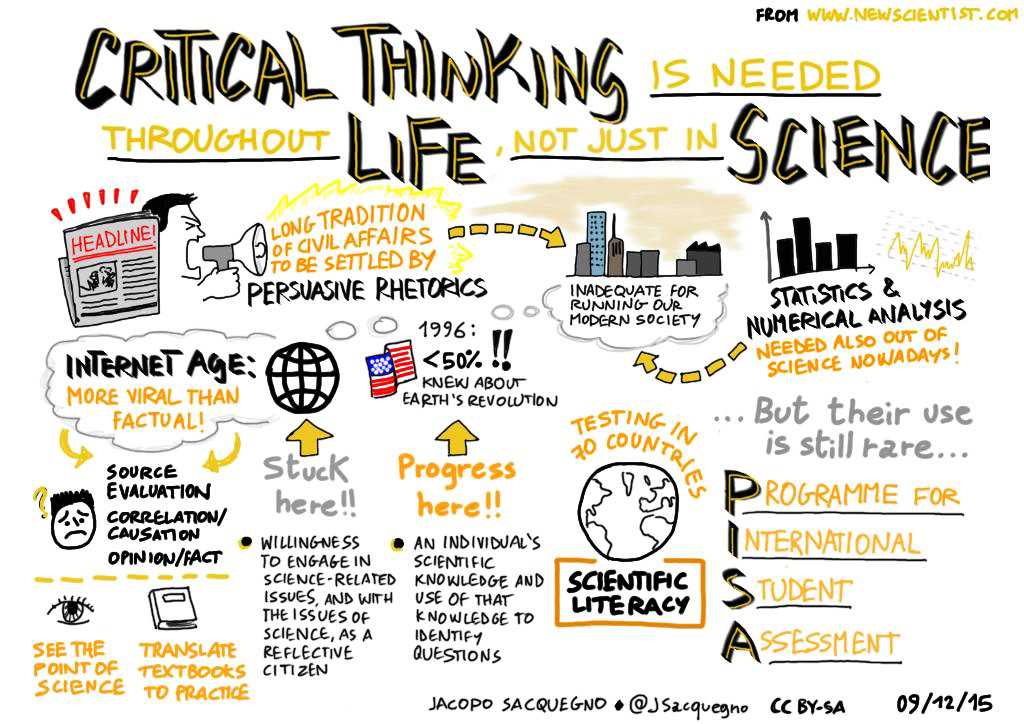 FROM WWW.NEWSCIENTIST.COM
CRITICAL THINKING IS NEEDED
THROUGHOUT LIFE, NOT JUST IN SCIENCE
HEADLINE!
LONG TRADITION
OF CIVIL AFFAIRS
TO BE SETTLED BY
PERSUASIVE RHETORICS
INADEQUATE FOR
RUNNING OUR
MODERN SOCIETY
STATISTICS &
NUMERICAL ANALYSIS
NEEDED ALSO OUT OF
SCIENCE NOWADAYS!
INTERNET AGE:
MORE VIRAL THAN
FACTUAL!
1996:
<50% !!
KNEW ABOUT
EARTH'S REVOLUTION
... But their use
is still rare...
?
SOURCE
EVALUATION
CORRELATION/
CAUSATION
OPINION/FACT
Stuck
here!!
Progress
here!!
TESTING IN
70 COUNTRIES
SCIENTIFIC
LITERACY
PROGRAMME FOR
INTERNATIONAL
STUDENT
ASSESSMENT
SEE THE
POINT OF
SCIENCE
TRANSLATE
TEXTBOOKS
TO PRACTICE
• WILLINGNESS
TO ENGAGE IN
SCIENCE-RELATED
ISSUES, AND WITH
THE ISSUES OF
SCIENCE, AS A
REFLECTIVE
CITIZEN
• AN INDIVIDUAL'S
SCIENTIFIC
KNOWLEDGE AND
USE OF THAT
KNOWLEDGE TO
IDENTIFY
QUESTIONS
JACOPO SACQUEGNO • @JSacquegno CC BY-SA 09/12/15